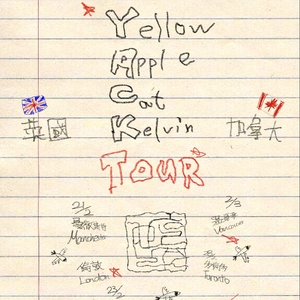 Yellow
Apple
Cat
Kelvin
英國
加拿大
TOUR
21/2
Manchester
倫敦
London
23/2
2/3
溫哥華
Vancouver
多倫多
Toronto